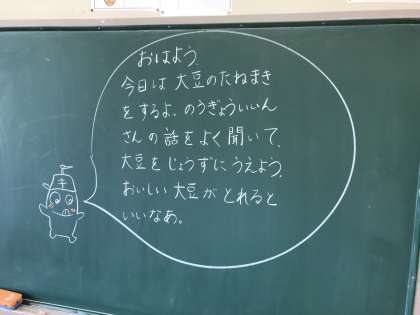 おはよう.
今日は大豆のたねまき
をするよ.のうぎょういいん
さんの話をよく聞いて,
大豆をじょうずにうえよう.
おいしい大豆がとれると
いいなあ。
キ